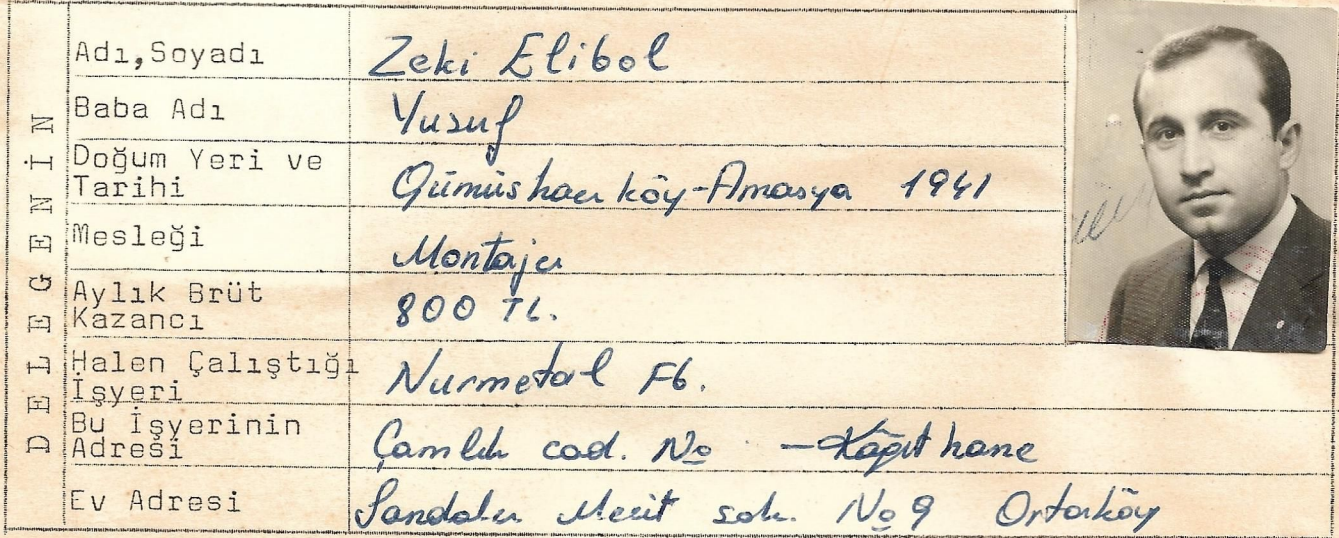 DELEGENİN
Adı,Soyadı Zeki Elibol
Baba Adı Yusuf
Doğum Yeri ve
Tarihi Gümüşhacıköy-Amasya 1941
Mesleği Montajcı
Aylık Brüt
Kazancı 800 TL.
Halen Çalıştığı
İşyeri Nurmetal Fb.
Bu İşyerinin
Adresi Çamlık cad. No - Kâğıthane
Ev Adresi Sandalcı sok. No 9 Ortaköy